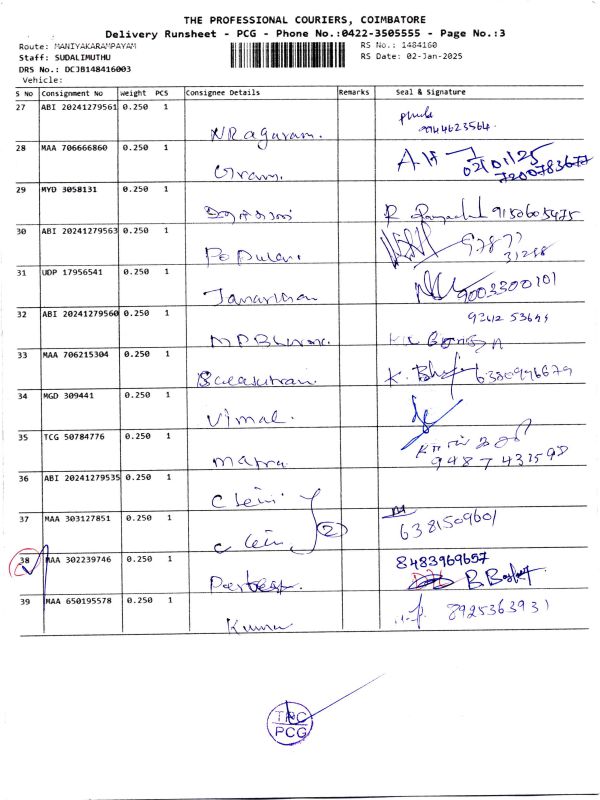 THE PROFESSIONAL COURIERS, COIMBATORE
Delivery Runsheet - PCG - Phone No.:0422-3505555 - Page No.:3
Route: MANIYAKARAMPAYAM RS No.: 1484160
Staff: SUDALIMUTHU RS Date: 02-Jan-2025
DRS No.: DCJB148416003
Vehicle:
S No Consignment No Weight PCS Consignee Details Remarks Seal & Signature
27 ABI 20241279561 0.250 1
NRagaram. 9144623564
28 MAA 706666860 0.250 1
Gram. 02/01/25
7200783677
29 MYD 3058131 0.250 1
9150605475
30 ABI 20241279563 0.250 1
Popular 97877
31288
31 UDP 17956541 0.250 1
Janarthan 9003300101
32 ABI 20241279560 0.250 1
33 MAA 706215304 0.250 1
K. 6380996679
34 MGD 309441 0.250 1
Vimal.
35 TCG 50784776 0.250 1
Matra
36 ABI 20241279535 0.250 1
37 MAA 303127851 0.250 1
2
6381509601
38 MAA 302239746 0.250 1
8483969657
39 MAA 650195578 0.250 1
Kumar 8925363931
TPC
PCG